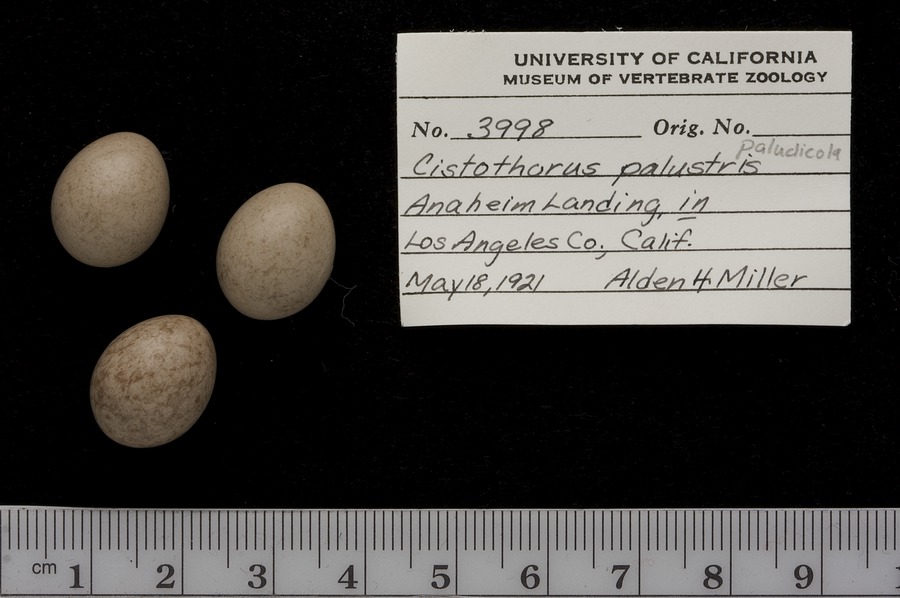 UNIVERSITY OF CALIFORNIA
MUSEUM OF VERTEBRATE ZOOLOGY
No. 3998 Orig. No.
paludicola
Cistothorus palustris
Anaheim Landing, in
Los Angeles Co., Calif.
May 18, 1921 Alden H Miller
cm 1 2 3 4 5 6 7 8 9 1